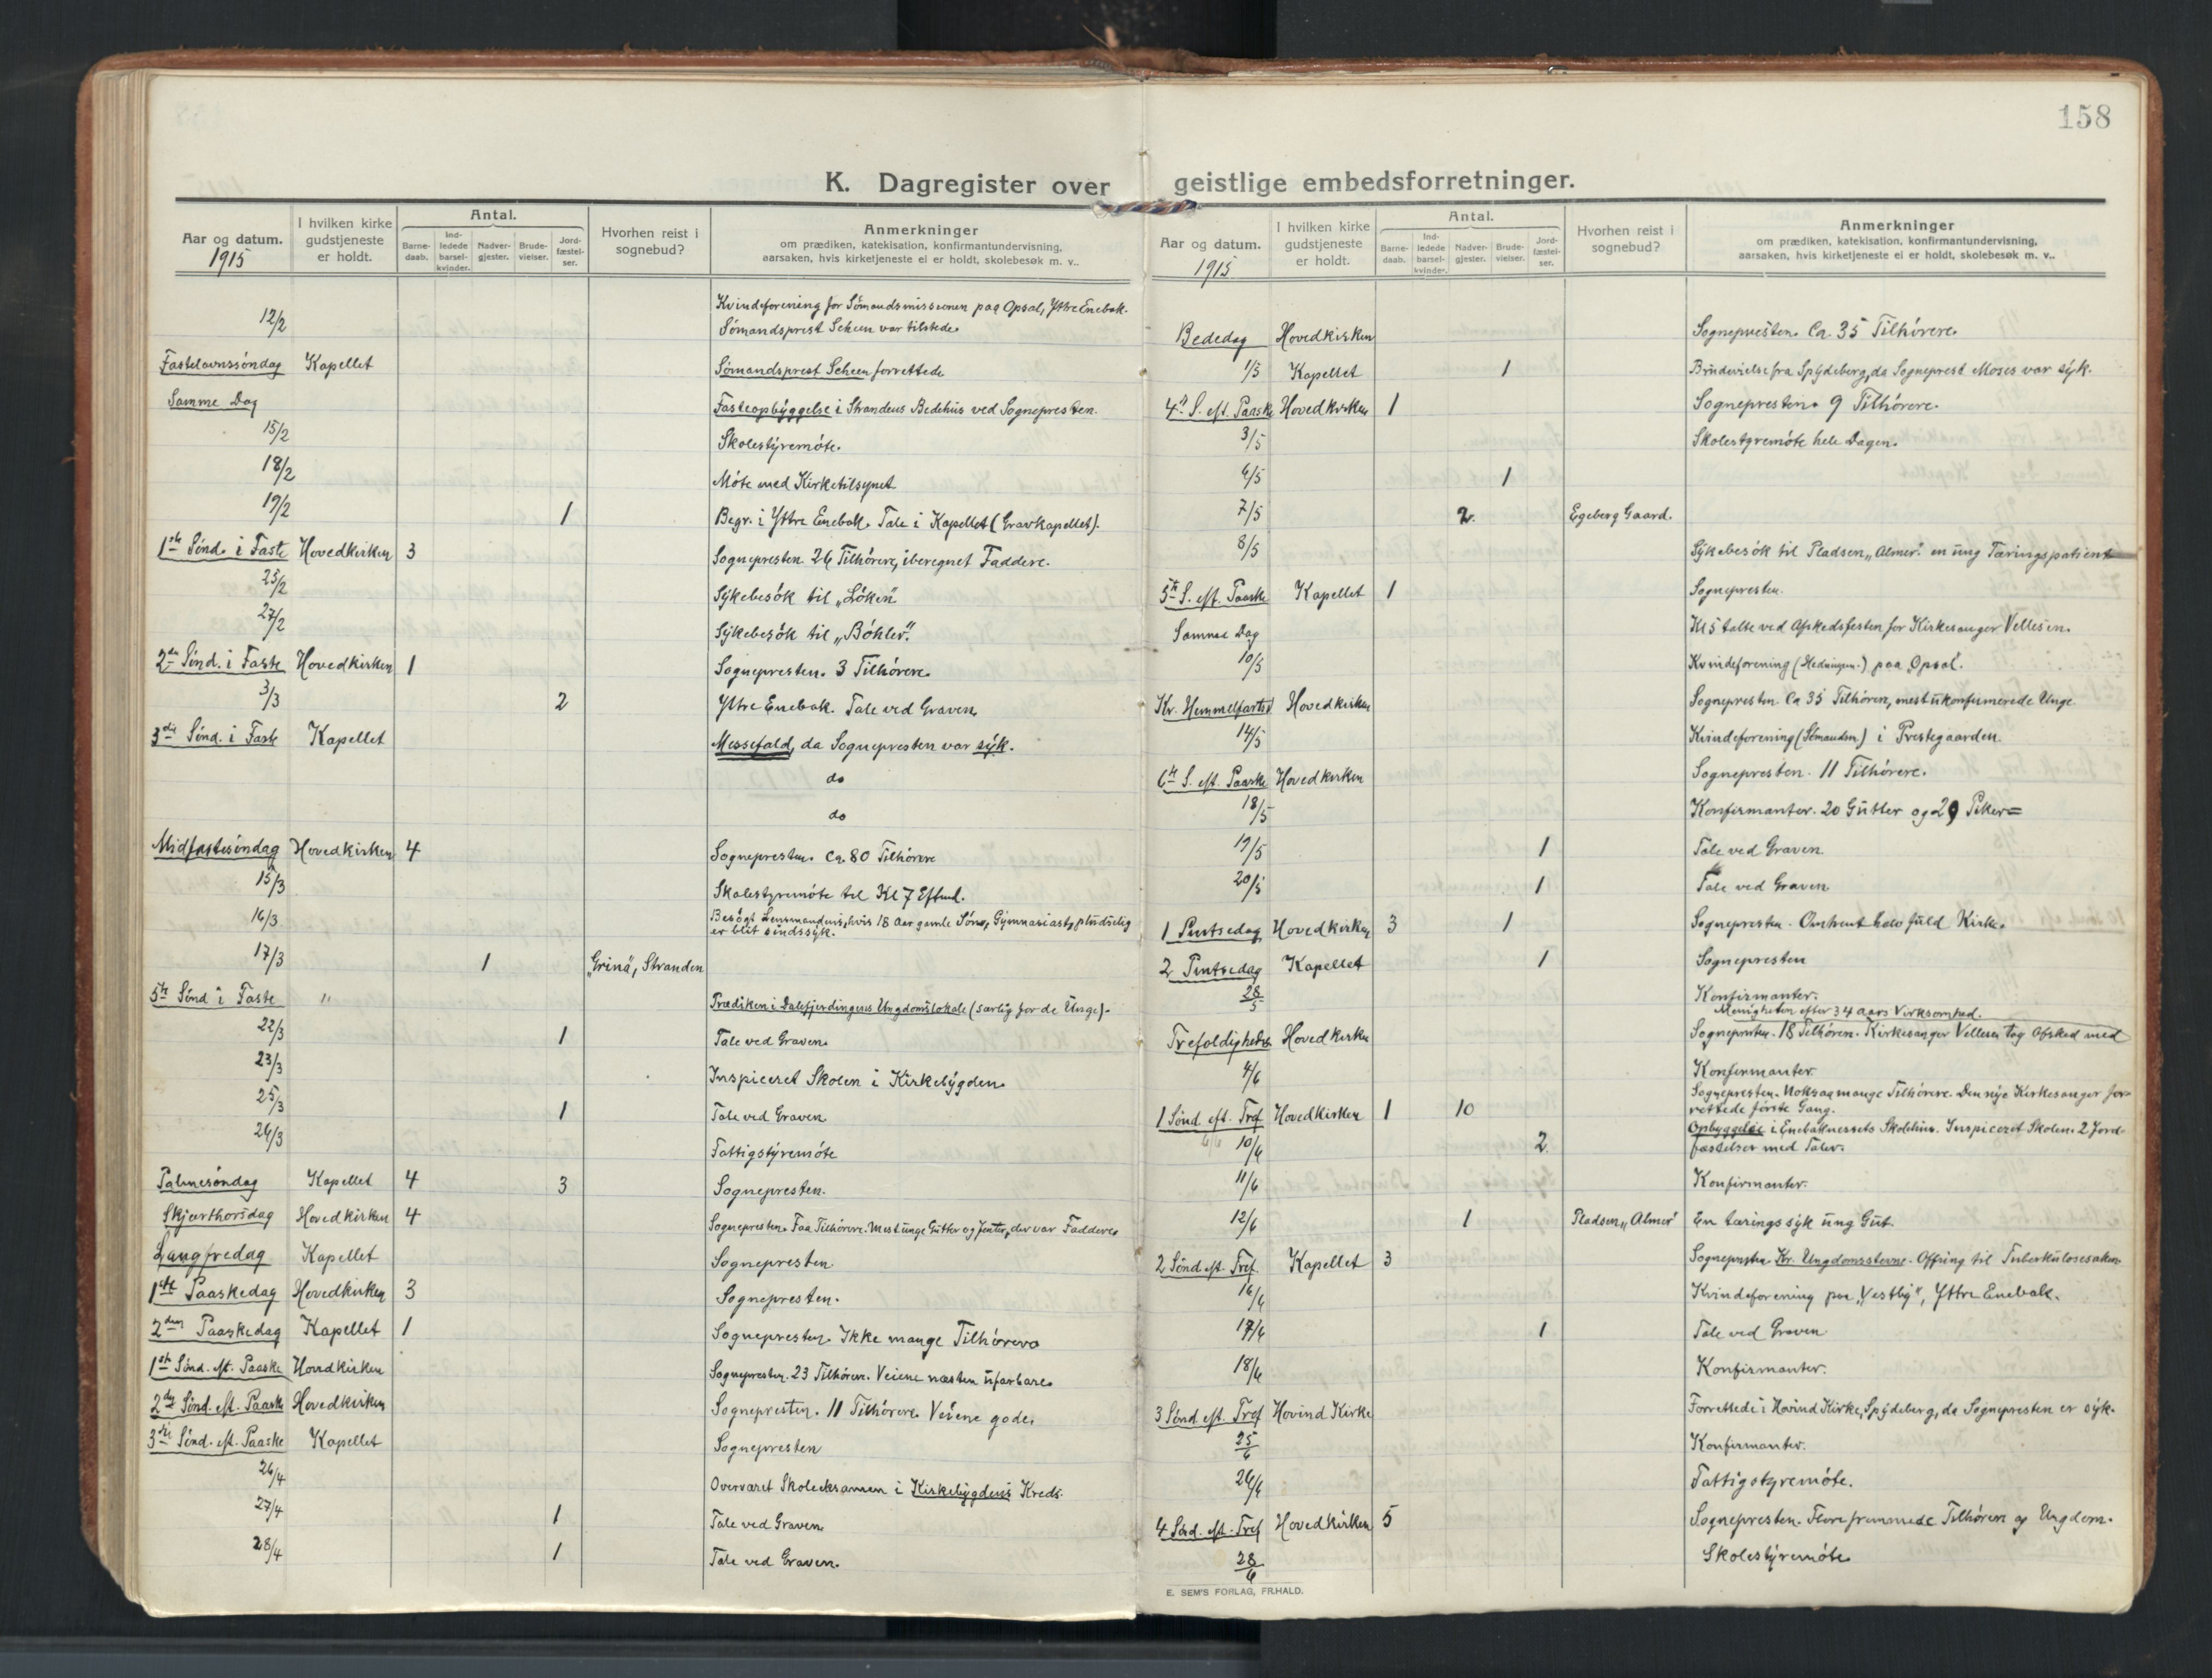 158
K. Dagregister over geistlige embedsforretninger.
Aar og datum. 1915 | I hvilken kirke gudstjeneste er holdt. | Antal. Barne-daab. | Ind-ledede barsel-kvinder. | Nadver-gjester. | Brude-vielser. | Jord-fæstel-ser. | Hvorhen reist i sognebud? | Anmerkninger om prædiken, katekisation, konfirmantundervisning, aarsaken, hvis kirketjeneste ei er holdt, skolebesøk m. v..
12/2 Kvindeforening for Sömandsmissionen paa Opsal, Yttre Enebak.
Sömandsprest Scheen var tilstede.
Fastelavnssöndag Kapellet Sömandsprest Scheen forrettede
Samme Dag Fasteopbyggelse i Strandens Bedehus ved Sognepresten.
15/2 Skolestyremöte.
18/2 Möte med Kirketilsynet
19/2 1 Begr. i Yttre Enebak. Tale i Kapellet (Gravkapellet).
1ste Sönd. i Faste Hovedkirken 3 Sognepresten. 26 Tilhörere, iberegnet Faddere.
25/2 Sykebesök til „Löken"
27/2 Sykebesök til „Böhler".
2den Sönd. i Faste Hovedkirken 1 Sognepresten. 3 Tilhörere.
3/3 2 Yttre Enebak. Tale ved Graven.
3die Sönd. i Faste Kapellet Messefald, da Sognepresten var syk.
do
do
Midfastesöndag Hovedkirken 4 Sognepresten. Ca. 80 Tilhörere
15/3 Skolestyremöte til Kl 7 Eftmd.
16/3 Besögt Lensmandens, hvis 18 Aar gamle Sön, Gymnasiast, pludselig
er blit sindssyk.
17/3 1 „Grina", Stranden
5te Sönd i Faste " Prædiken i Dalefjerdingens Ungdomslokale (særlig for de Unge).
22/3 1 Tale ved Graven.
23/3 Inspiceret Skolen i Kirkebygden.
25/3 1 Tale ved Graven
26/3 Fattigstyremöte
Palmesöndag Kapellet 4 3 Sognepresten.
Skjærthorsdag Hovedkirken 4 Sognepresten. Faa Tilhörere. Mest unge Gutter og Jenter, der var Faddere.
Langfredag Kapellet Sognepresten
1ste Paaskedag Hovedkirken 3 Sognepresten.
2den Paaskedag Kapellet 1 Sognepresten. Ikke mange Tilhörere
1ste Sönd. eft. Paaske Hovedkirken Sognepresten. 23 Tilhörere. Veiene næsten ufarbare.
2den Sönd. eft. Paaske Hovedkirken Sognepresten. 11 Tilhörere. Veiene gode.
3die Sönd. eft. Paaske Kapellet Sognepresten
26/4 Overværet Skoleeksamen i Kirkebygdens Kreds.
27/4 1 Tale ved Graven.
28/4 1 Tale ved Graven.
Aar og datum. 1915 | I hvilken kirke gudstjeneste er holdt. | Antal. Barne-daab. | Ind-ledede barsel-kvinder. | Nadver-gjester. | Brude-vielser. | Jord-fæstel-ser. | Hvorhen reist i sognebud? | Anmerkninger om prædiken, katekisation, konfirmantundervisning, aarsaken, hvis kirketjeneste ei er holdt, skolebesøk m. v..
Bededag Hovedkirken Sognepresten. Ca. 35 Tilhörere.
1/5 Kapellet 1 Brudevielse fra Spydeberg, da Sogneprest Moses var syk.
4de S. eft. Paaske Hovedkirken 1 Sognepresten. 9 Tilhörere.
3/5 Skolestyremöte hele Dagen.
6/5 1
7/5 2. Egeberg Gaard.
8/5 Sykebesök til Pladsen „Almer". en ung Tæringspatient
5te S. eft. Paaske Kapellet 1 Sognepresten.
Samme Dag Kl 5 talte ved Afskedsfesten for Kirkesanger Vellesen.
10/5 Kvindeforening (Hedningem.) paa Opsal.
Kr. Hemmelfartsd Hovedkirken Sognepresten. Ca 35 Tilhörere, mest ukonfirmerede Unge.
14/5 Kvindeforening (Sömandsm.) i Prestegaarden.
6te S. eft. Paaske Hovedkirken Sognepresten. 11 Tilhörere.
18/5 Konfirmanter. 20 Gutter og 29 Piker =
19/5 1 Tale ved Graven.
20/5 1 Tale ved Graven
1 Pintsedag Hovedkirken 3 1 Sognepresten. Omtrent halv fuld Kirke.
2 Pintsedag Kapellet 1 Sognepresten
28/5 Konfirmanter.
Menigheten efter 34 Aars Virksomhed.
Trefoldighets Hovedkirken Sognepresten. 18 Tilhörere. Kirkesanger Vellesen tog Afsked med
4/6 Konfirmanter.
1 Sönd. eft. Tref Hovedkirken 1 10 Sognepresten. Noksaa mange Tilhörere. Den nye Kirkesanger for-
rettede förste Gang.
10/6 2 Opbyggelse i Enebaknessets Skolehus. Inspiceret Skolen. 2 Jord-
fæstelser med Taler.
11/6 Konfirmanter.
12/6 1 Pladsen „Almer" En tæringssyk ung Gut.
2 Sönd eft. Tref Kapellet 3 Sognepresten Kr. Ungdomsstevne. Offring til Tuberkulosesaken
16/6 Kvindeforening paa „Vestby", Yttre Enebak.
17/6 1 Tale ved Graven
18/6 Konfirmanter.
3 Sönd. eft. Tref Hovind Kirke Forrettede i Hovind Kirke, Spydeberg, da Sognepresten er syk.
25/6 Konfirmanter.
26/6 Fattigstyremöte.
4 Sönd. eft. Tref Hovedkirken 5 Sognepresten. Flere fremmede Tilhörere og Ungdom.
28/6 Skolestyremöte
E. SEM'S FORLAG, FR.HALD.